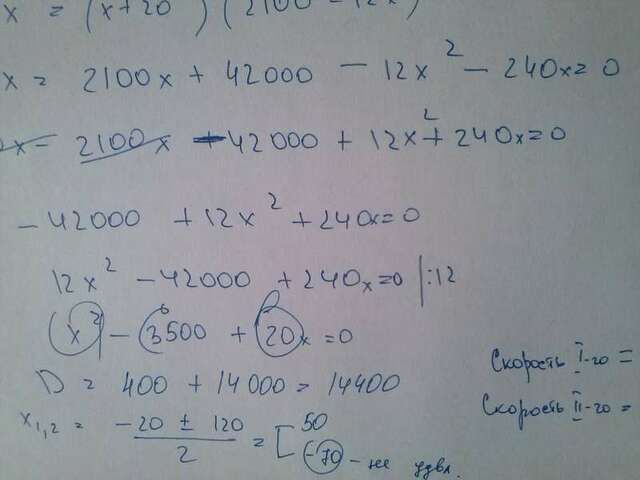 x = (x+20)(2100 - 12x)
x = 2100x + 42000 - 12x² - 240x = 0
0x - 2100x + 42000 + 12x² + 240x = 0
- 42000 + 12x² + 240x = 0
12x² - 42000 + 240x = 0 | :12
x² - 3500 + 20x = 0
D = 400 + 14000 = 14400
x1,2 = -20 ± 120 / 2 = [ 50
-70 - не удвл.
Скорость I-го =
Скорость II-го =